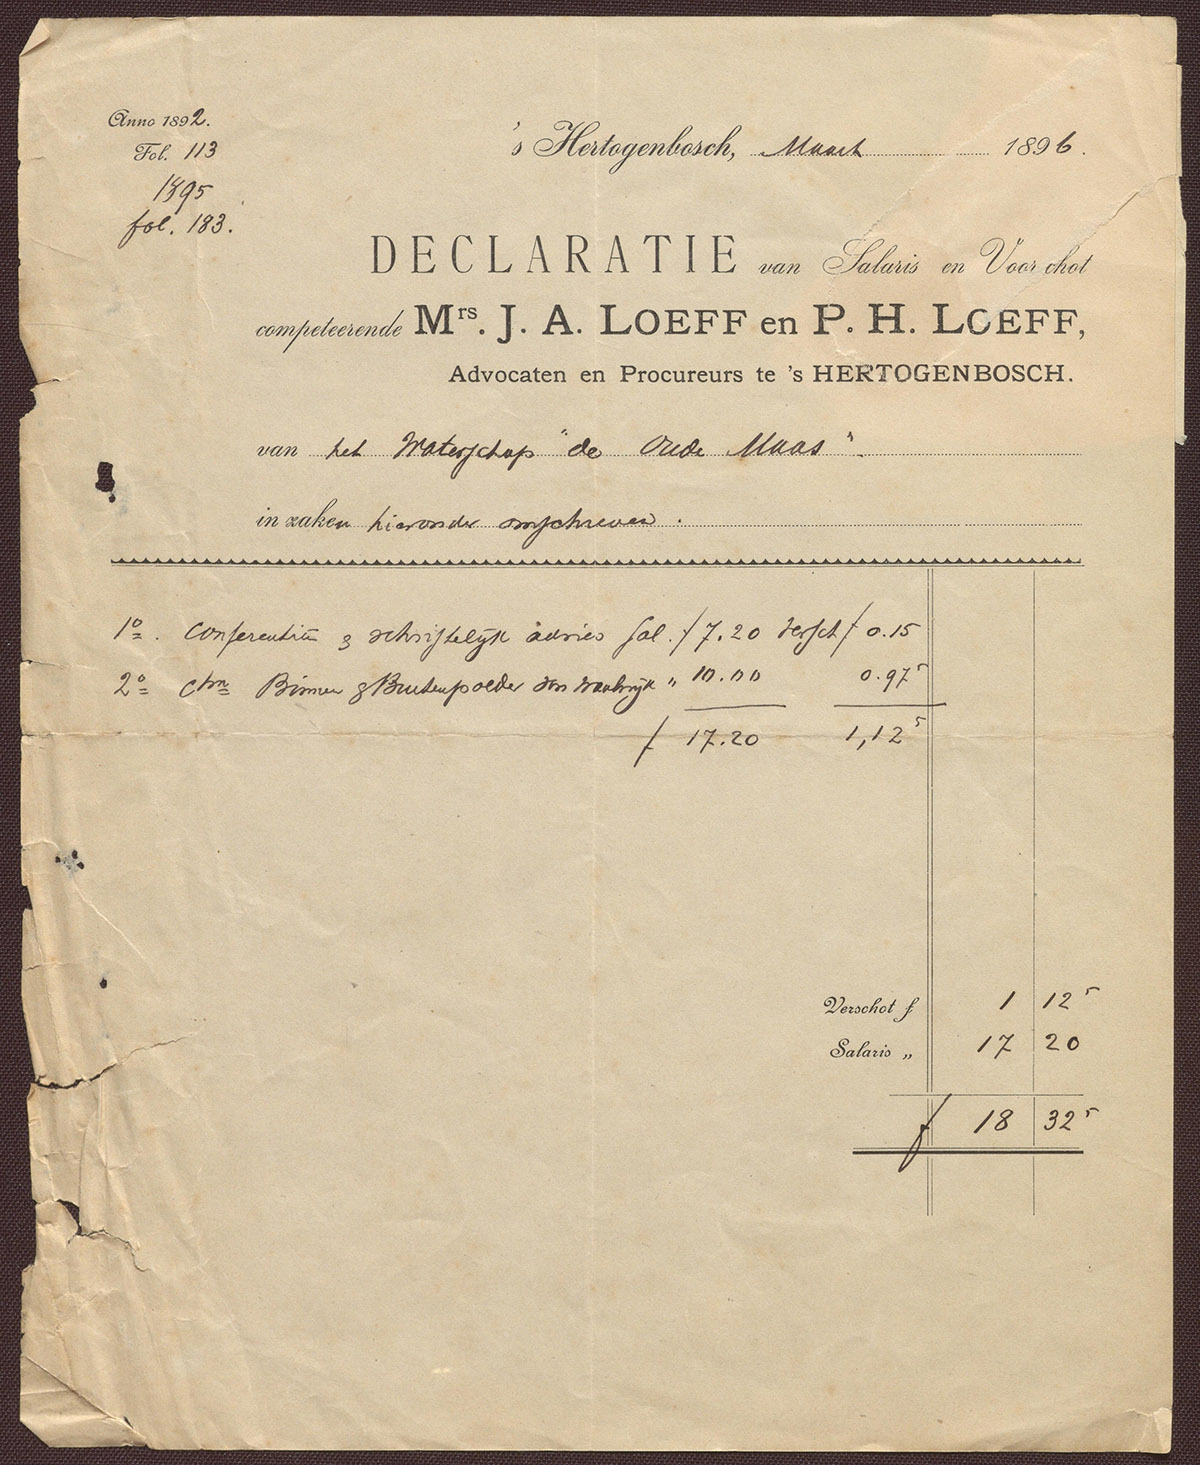 Anno 1892.
Fol. 113
1895
fol. 183.
's Hertogenbosch, Maart 1896.
DECLARATIE van Salaris en Voorschot
competeerende Mrs. J. A. LOEFF en P. H. LOEFF,
Advocaten en Procureurs te 's HERTOGENBOSCH.
van het Waterschap "de Oude Maas".
in zaken hieronder omschreven.
1o. Conferentiën & schriftelijk advies Sal. f 7.20 Versch f 0.15
2o Ctra Binnen & Buitenpolder van " 10.00 0.97 5
f 17.20 1,12 5
Verschot f 1 12 5
Salaris „ 17 20
f 18 32 5